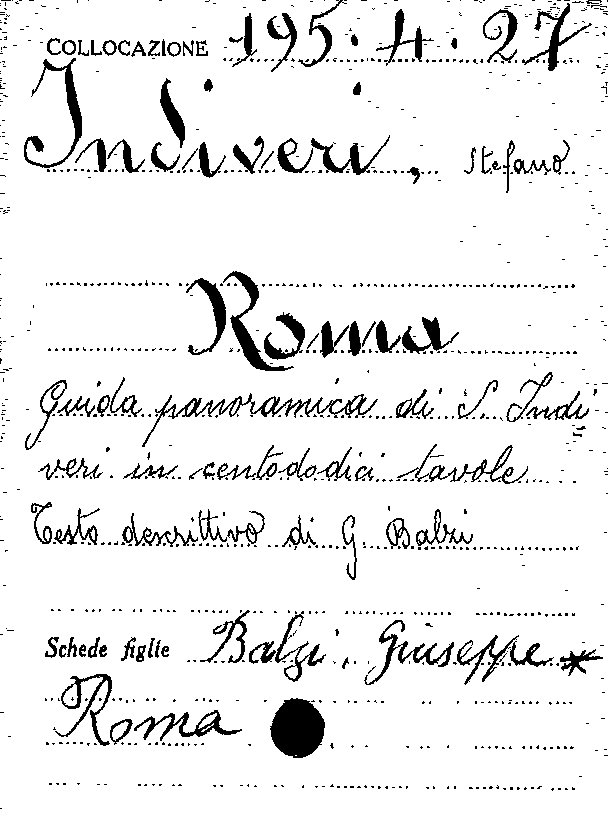 COLLOCAZIONE 195.4.27
Indiveri, Stefano
Roma
Guida panoramica di S. Indi
veri in centododici tavole
Testo descrittivo di G. Balzi
Schede figlie Balzi, Giuseppe *
Roma